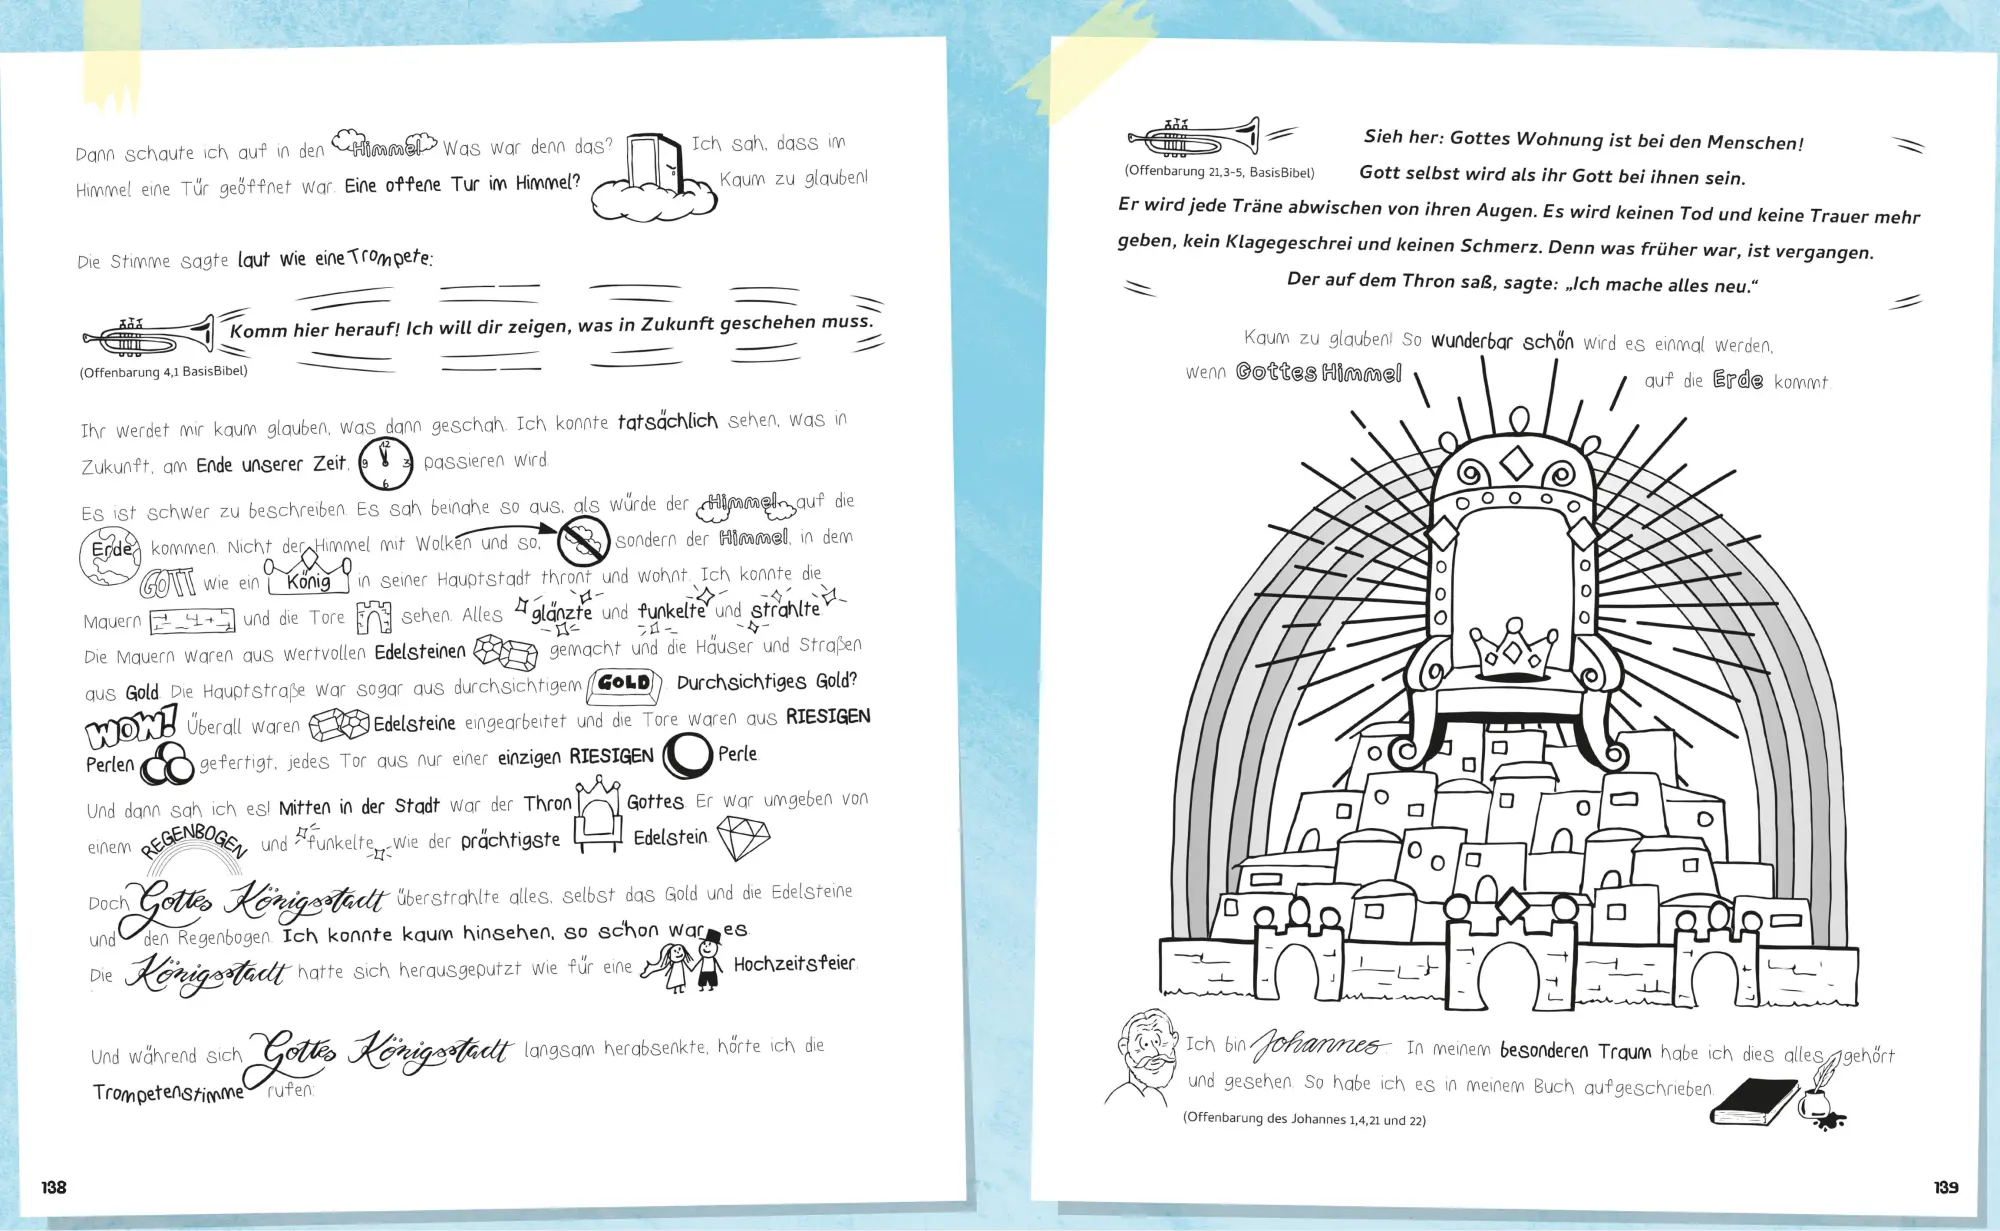 Dann schaute ich auf in den Himmel Was war denn das? Ich sah, dass im
Himmel eine Tür geöffnet war. Eine offene Tur im Himmel? Kaum zu glauben!
Die Stimme sagte laut wie eine Trompete:
Komm hier herauf! Ich will dir zeigen, was in Zukunft geschehen muss.
(Offenbarung 4,1 BasisBibel)
Ihr werdet mir kaum glauben, was dann geschah. Ich konnte tatsächlich sehen, was in
Zukunft, am Ende unserer Zeit, 12 9 3 6 passieren wird.
Es ist schwer zu beschreiben. Es sah beinahe so aus, als würde der Himmel auf die
Erde kommen. Nicht der Himmel mit Wolken und so, sondern der Himmel, in dem
GOTT wie ein König in seiner Hauptstadt thront und wohnt. Ich konnte die
Mauern und die Tore sehen. Alles glänzte und funkelte und strahlte
Die Mauern waren aus wertvollen Edelsteinen gemacht und die Häuser und Straßen
aus Gold. Die Hauptstraße war sogar aus durchsichtigem GOLD. Durchsichtiges Gold?
WOW! Überall waren Edelsteine eingearbeitet und die Tore waren aus RIESIGEN
Perlen gefertigt, jedes Tor aus nur einer einzigen RIESIGEN Perle.
Und dann sah ich es! Mitten in der Stadt war der Thron Gottes. Er war umgeben von
einem REGENBOGEN und funkelte wie der prächtigste Edelstein.
Doch Gottes Königsstadt überstrahlte alles, selbst das Gold und die Edelsteine
und den Regenbogen. Ich konnte kaum hinsehen, so schön war es.
Die Königsstadt hatte sich herausgeputzt wie für eine Hochzeitsfeier.
Und während sich Gottes Königsstadt langsam herabsenkte, hörte ich die
Trompetenstimme rufen:
138
Sieh her: Gottes Wohnung ist bei den Menschen!
(Offenbarung 21,3-5, BasisBibel)
Gott selbst wird als ihr Gott bei ihnen sein.
Er wird jede Träne abwischen von ihren Augen. Es wird keinen Tod und keine Trauer mehr
geben, kein Klagegeschrei und keinen Schmerz. Denn was früher war, ist vergangen.
Der auf dem Thron saß, sagte: „Ich mache alles neu.“
Kaum zu glauben! So wunderbar schön wird es einmal werden,
wenn Gottes Himmel auf die Erde kommt.
Ich bin Johannes. In meinem besonderen Traum habe ich dies alles gehört
und gesehen. So habe ich es in meinem Buch aufgeschrieben.
(Offenbarung des Johannes 1,4,21 und 22)
139